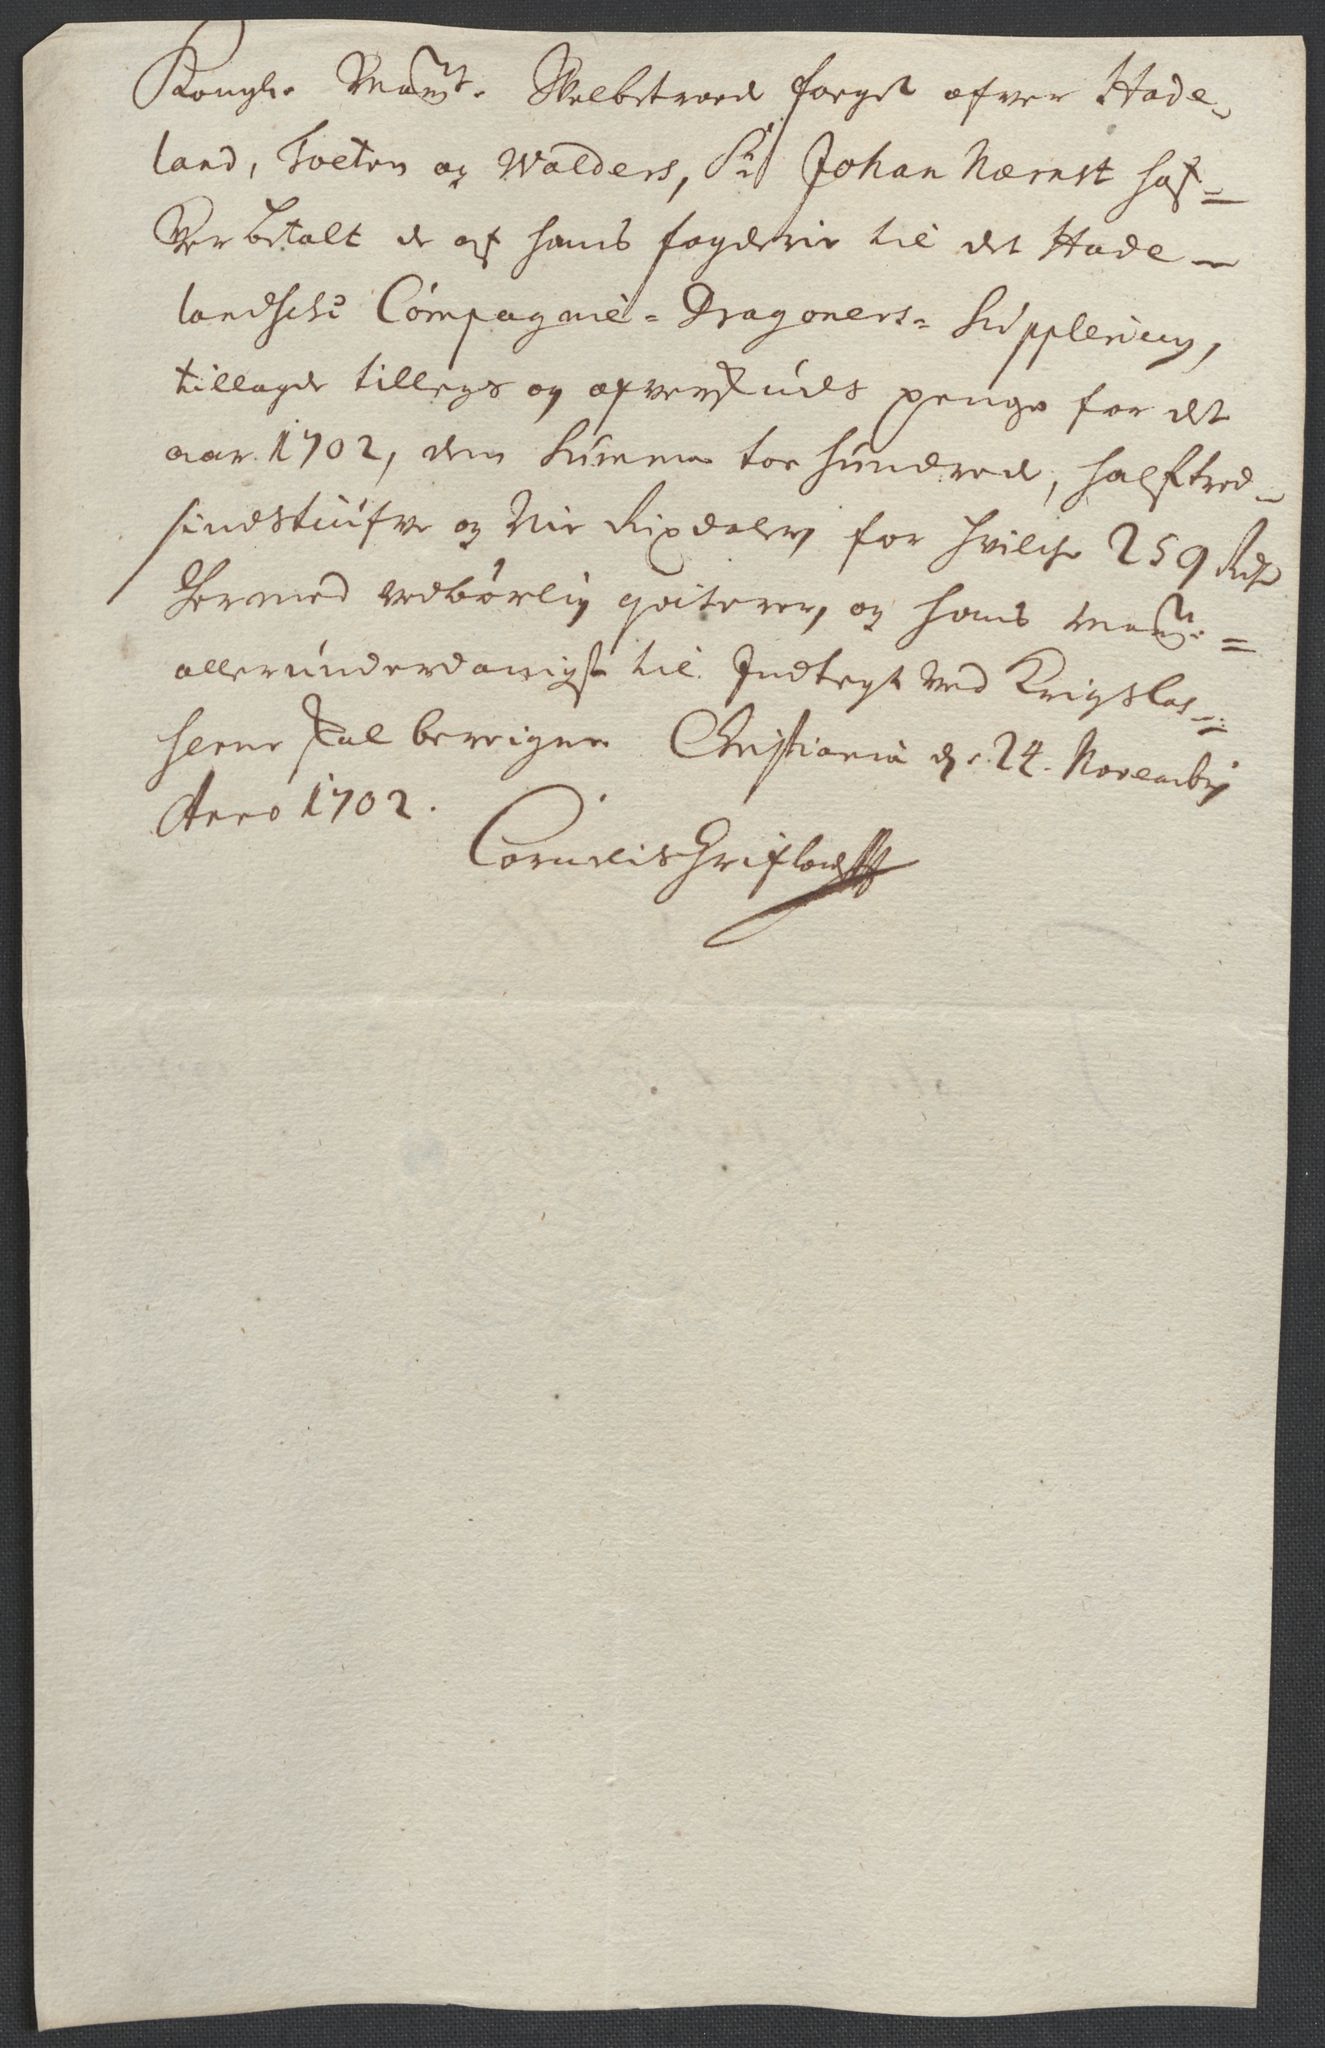 Kongl. Maytt. Velbetroed fogd ofver Hade-
land, Toeten og Walders, Sr. Johan Nærnst haf-
ver betalt de af hans fogderie til det Hade-
landsche Compagnie-Dragoners-Supplering,
tillagde tillegs og ofverskuds penge for det
aar 1702, den Summa toe hundrede, halftred-
sindstiufve og Nie Rixdaler, for hvilche 259 Rdr
hermed vedbørlig qviteres, og hans Maytt.
allerunderdanigst til Indtegt ved Krigslas-
serne skal beregnes Christiania d. 24. Novembr
Anno 1702.
Cornelis Grifland